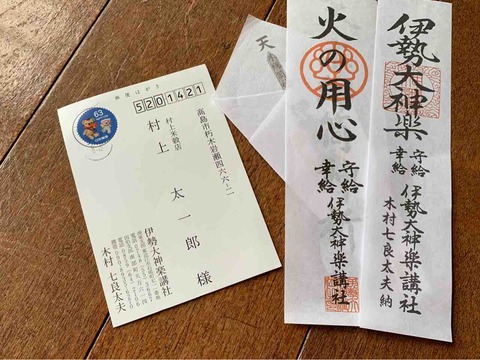 郵便はがき
5201421
63
高島市朽木岩瀬四六六ー二
村上米穀店
村上 太一郎 様
伊勢大神楽講社
木村七良太夫
天
火の用心
守給
幸給
伊勢大神樂講社
伊勢大神樂
守給
幸給
伊勢大神樂講社
木村七良太夫納